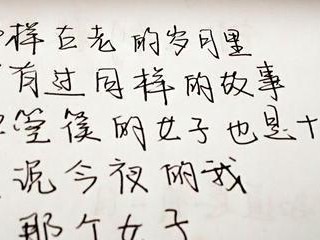 样古老的岁月里
有过同样的故事
箜篌的女子也是十
说今夜的我
那个女子